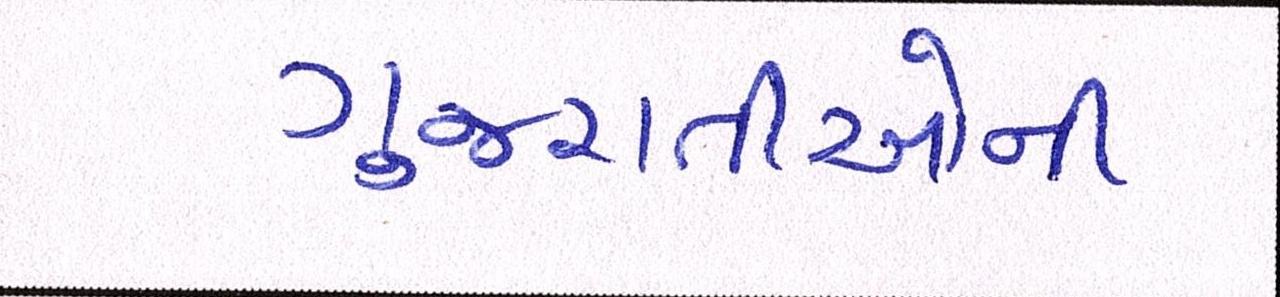 ગુજરાતીઓની